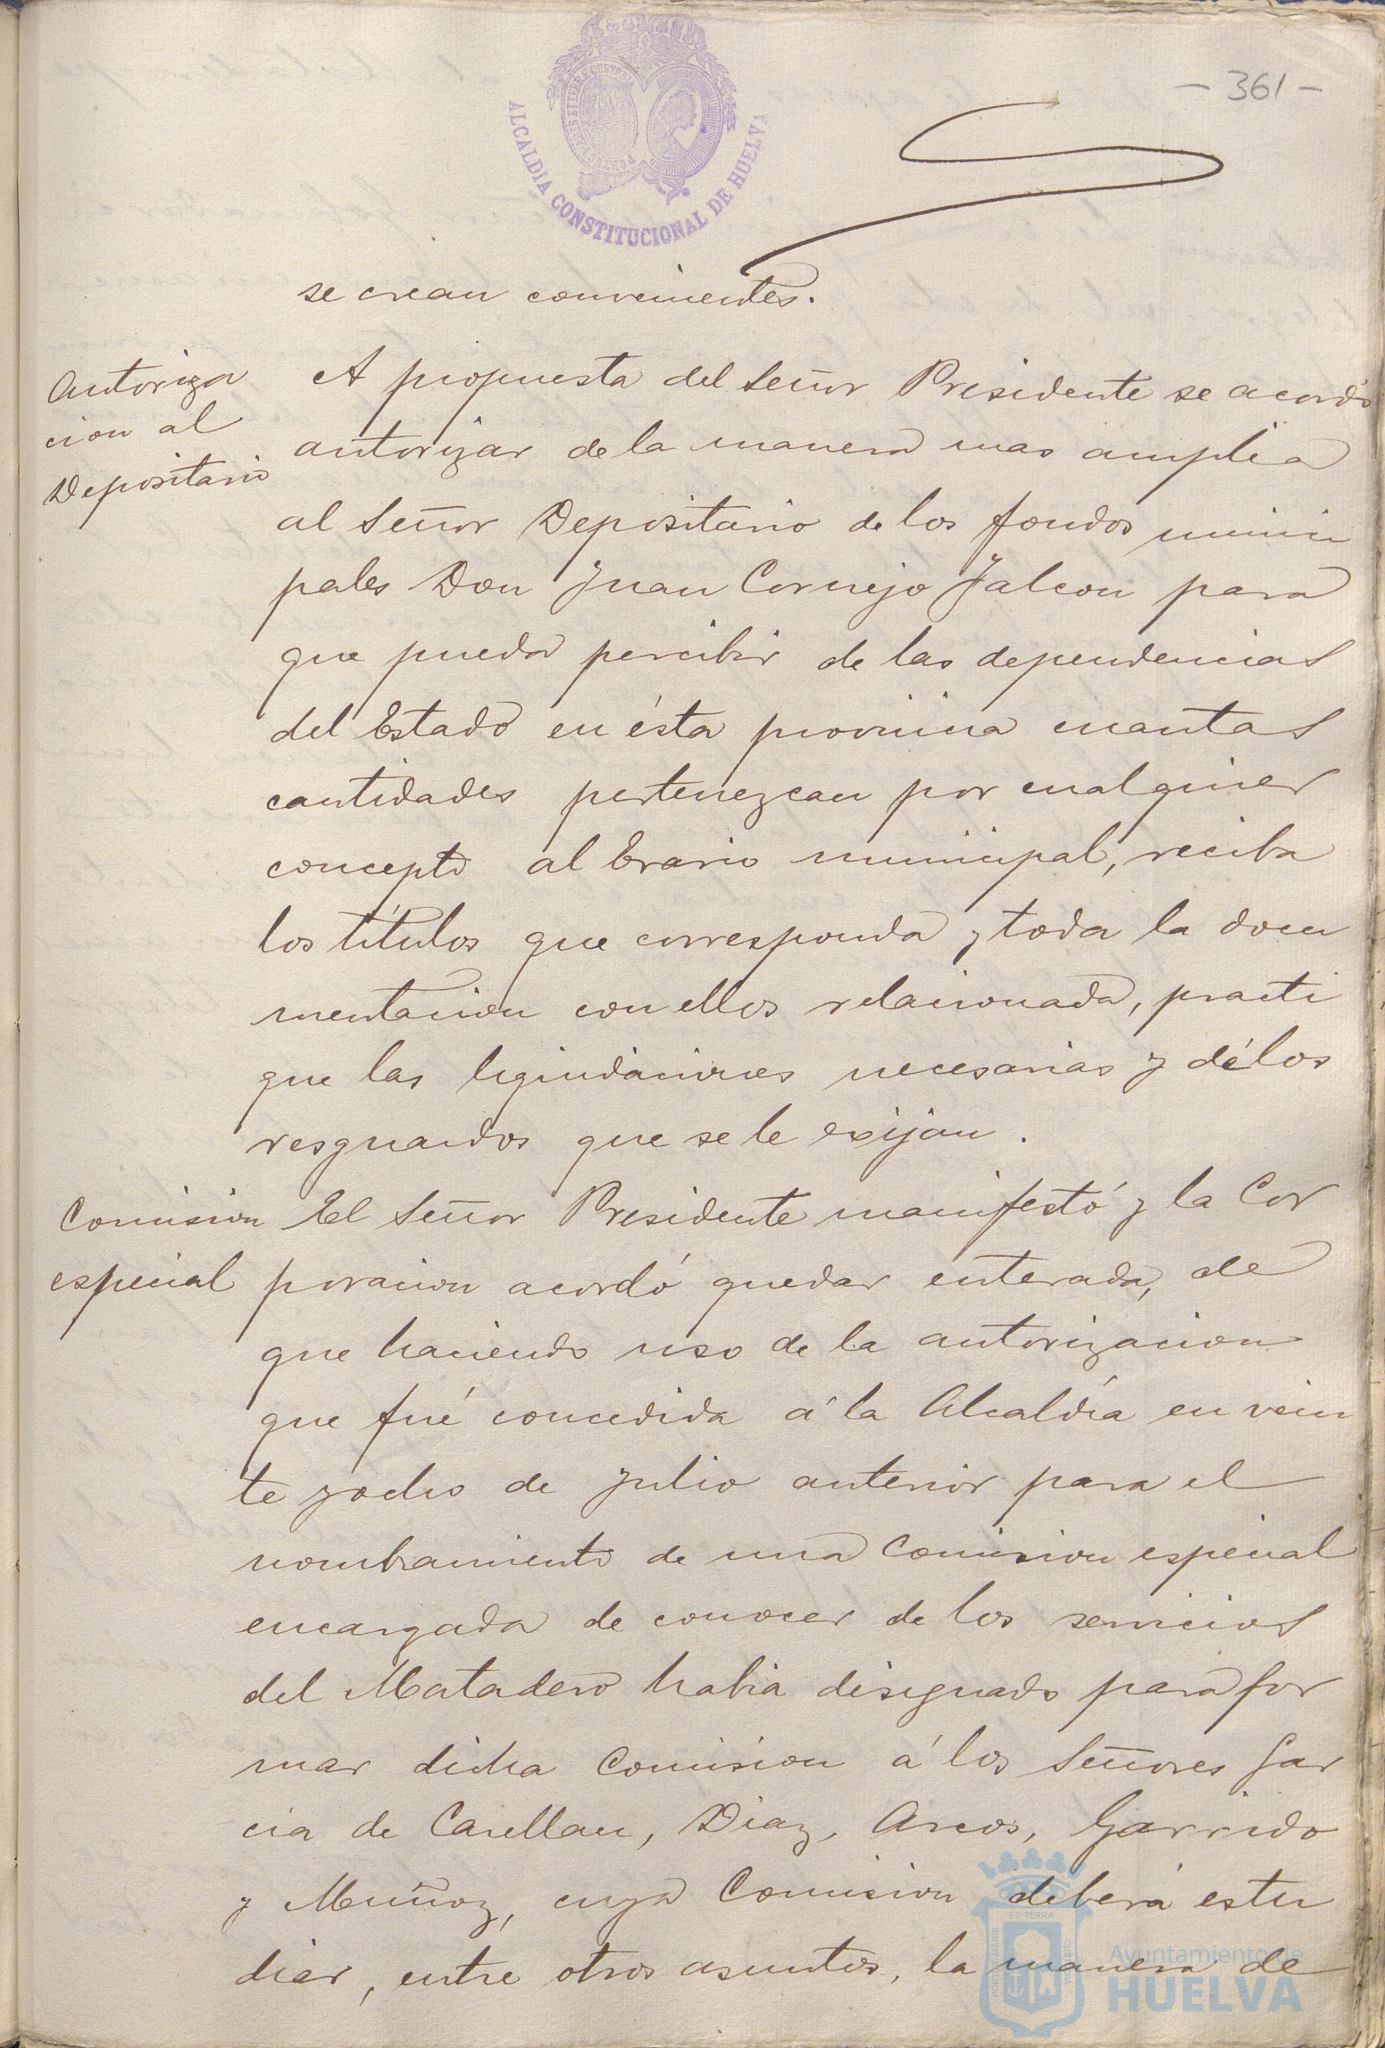 - 361 -
ALCALDIA CONSTITUCIONAL DE HUELVA
se crean convenientes.
Autoriza
cion al
Depositario
A propuesta del Señor Presidente se acordó
autorizar de la manera mas amplia
al Señor Depositario de los fondos munici
pales Don Juan Cornejo Jalcon para
que pueda percibir de las dependencias
del Estado en ésta provincia cuantas
cantidades pertenezcan por cualquier
concepto al Erario municipal, reciba
los títulos que corresponda y toda la docu
mentacion con ellos relacionada, practi
que las liquidaciones necesarias y dé los
resguardos que se le exijan.
Comision
especial
El Señor Presidente manifestó y la Cor
poracion acordó quedar enterada, de
que haciendo uso de la autorizacion
que fué concedida á la Alcaldía en vein
te y ocho de Julio anterior para el
nombramiento de una Comision especial
encargada de conocer de los servicios
del Matadero habia designado para for
mar dicha Comision á los Señores Gar
cia de Casellan, Diaz, Arcos, Garrido
y Muñoz, cuya Comision deberá estu
diar, entre otros asuntos, la manera de
Ayuntamiento de
HUELVA